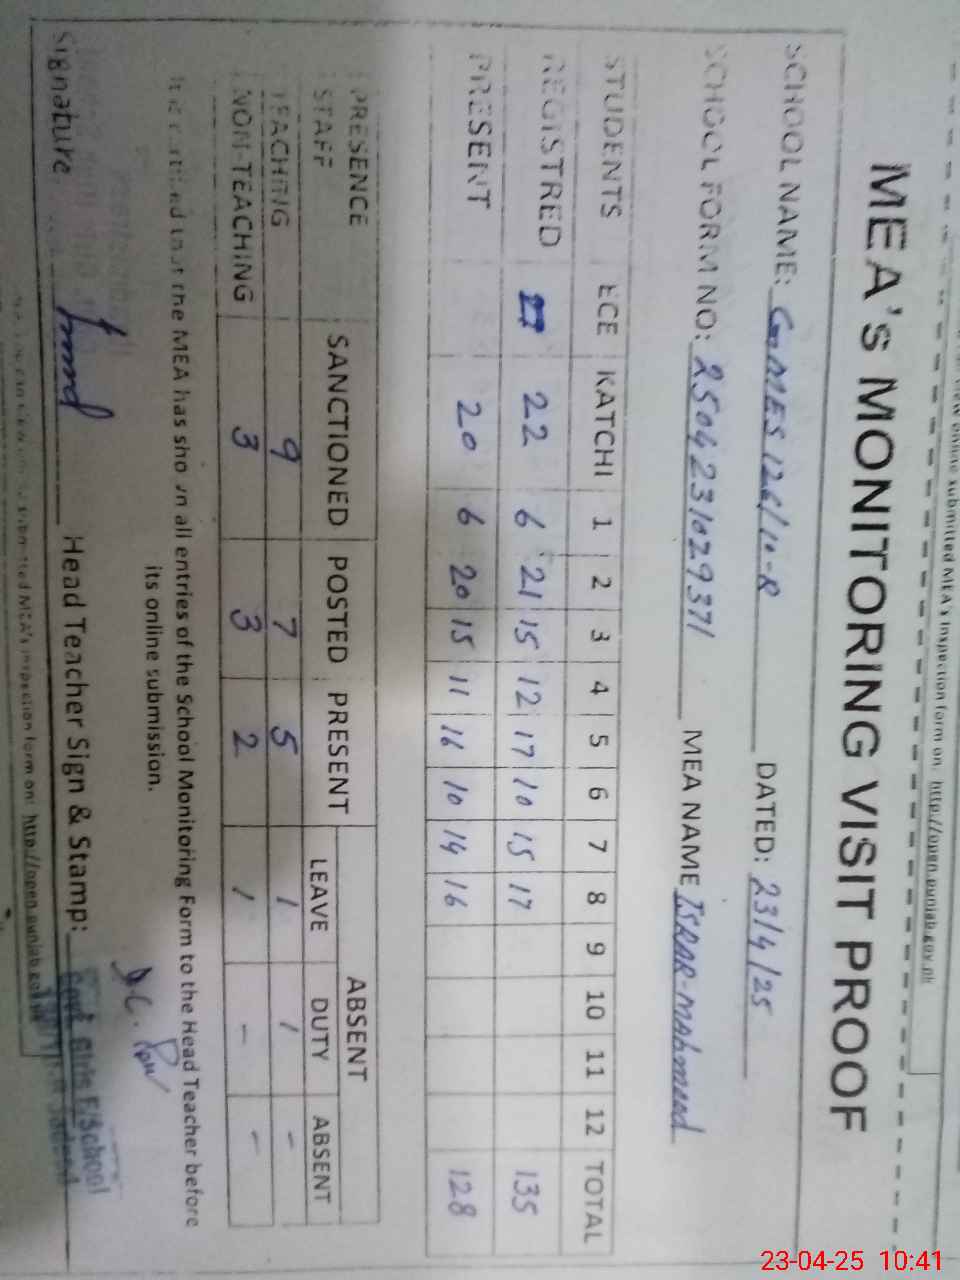 view online submitted MEA's Inspection form on: http://open.punjab.gov.pk
MEA'S MONITORING VISIT PROOF
SCHOOL NAME: GGMES 126/10-R DATED: 23/4/25
SCHOOL FORM NO: 2504231029371 MEA NAME ISRAR-Mahmood
STUDENTS ECE KATCHI 1 2 3 4 5 6 7 8 9 10 11 12 TOTAL
REGISTRED 22 6 21 15 12 17 10 15 17 135
PRESENT 20 6 20 15 11 16 10 14 16 128
PRESENCE STAFF SANCTIONED POSTED PRESENT ABSENT
LEAVE DUTY ABSENT
TEACHING 9 7 5 1 1 -
NON-TEACHING 3 3 2 1 - -
It is certified that the MEA has shown all entries of the School Monitoring Form to the Head Teacher before
its online submission.
Signature Head Teacher Sign & Stamp:
Govt Girls E/School
submitted MEA's Inspection form on: http://open.punjab.gov
23-04-25 10:41